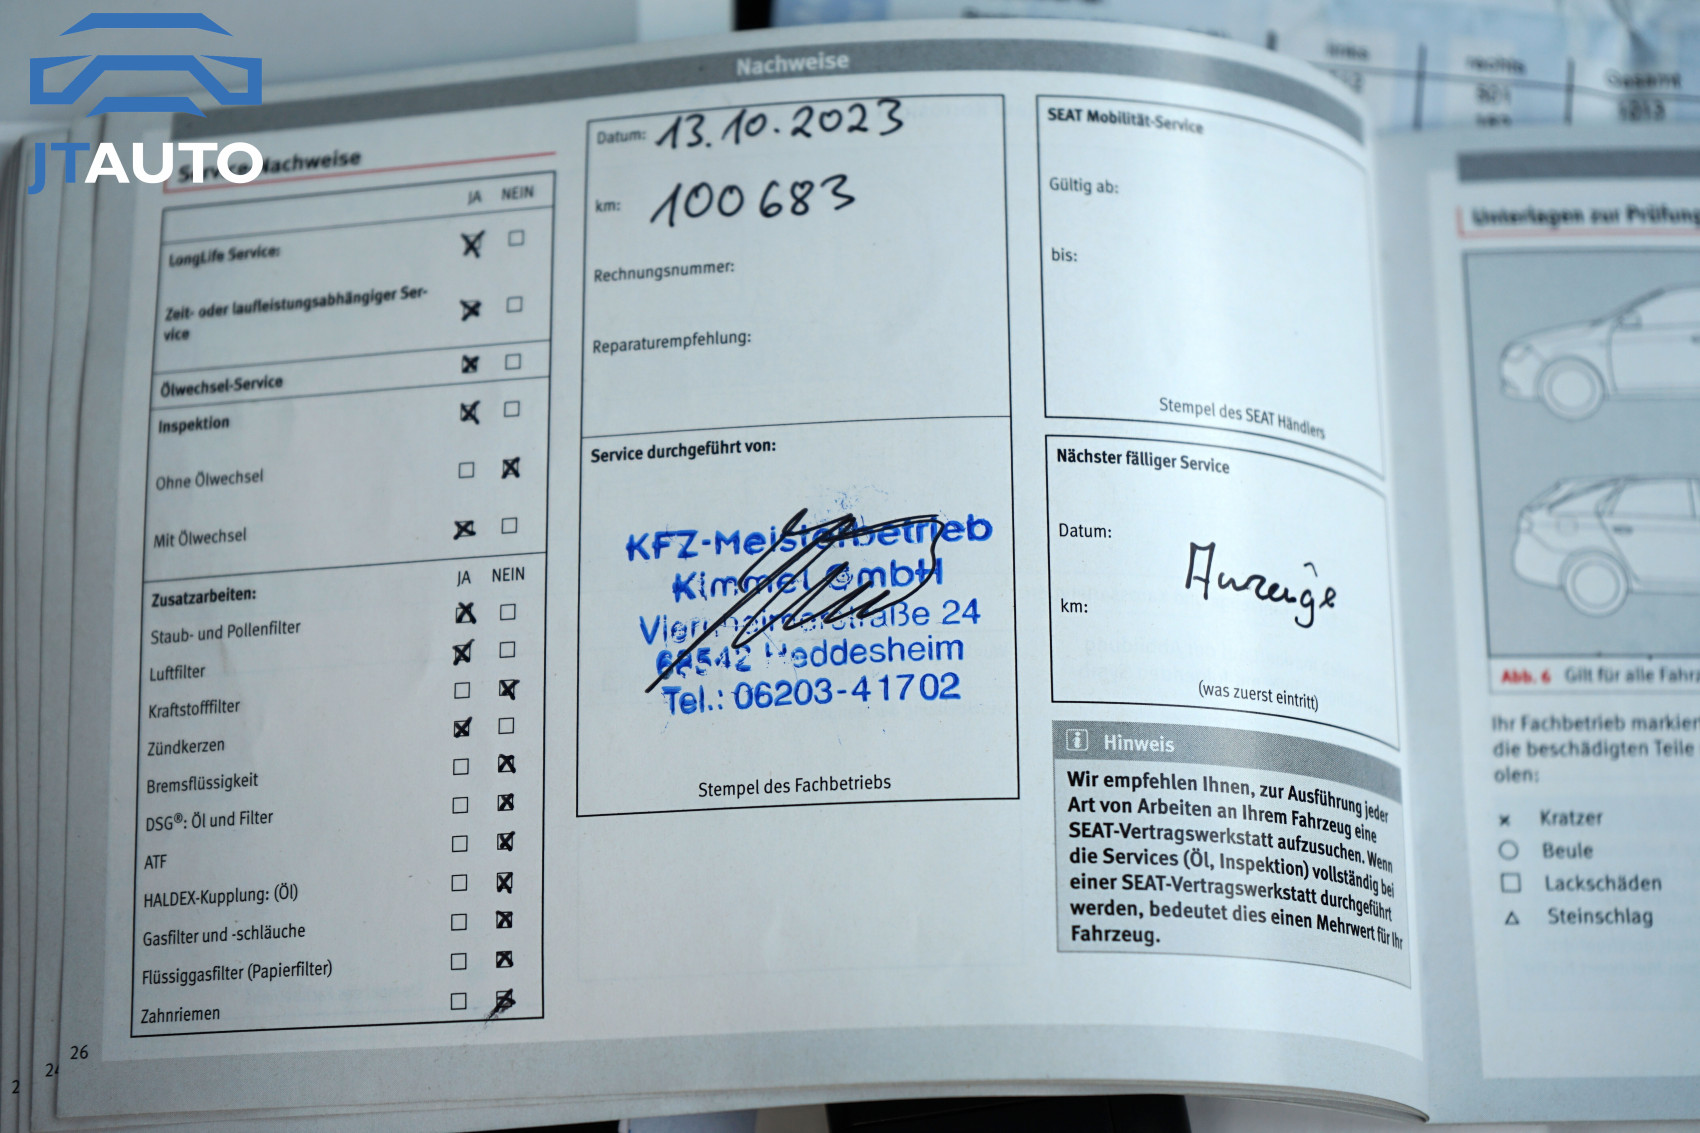 JTAUTO
Nachweise
Service-Nachweise
JA NEIN
LongLife Service:
Zeit- oder laufleistungsabhängiger Ser-
vice
Ölwechsel-Service
Inspektion
Ohne Ölwechsel
Mit Ölwechsel
JA NEIN
Zusatzarbeiten:
Staub- und Pollenfilter
Luftfilter
Kraftstofffilter
Zündkerzen
Bremsflüssigkeit
DSG®: Öl und Filter
ATF
HALDEX-Kupplung: (Öl)
Gasfilter und -schläuche
Flüssiggasfilter (Papierfilter)
Zahnriemen
26
24
2
Datum: 13.10.2023
km: 100 683
Rechnungsnummer:
Reparaturempfehlung:
Service durchgeführt von:
KFZ-Meisterbetrieb
Kimmel GmbH
Viernheimerstraße 24
68542 Heddesheim
Tel.: 06203-41702
Stempel des Fachbetriebs
SEAT Mobilität-Service
Gültig ab:
bis:
Stempel des SEAT Händlers
Nächster fälliger Service
Datum:
Anzeige
km:
(was zuerst eintritt)
Hinweis
Wir empfehlen Ihnen, zur Ausführung jeder
Art von Arbeiten an Ihrem Fahrzeug eine
SEAT-Vertragswerkstatt aufzusuchen. Wenn
die Services (Öl, Inspektion) vollständig bei
einer SEAT-Vertragswerkstatt durchgeführt
werden, bedeutet dies einen Mehrwert für Ihr
Fahrzeug.
links
rechts
Gesamt
Unterlagen zur Prüfung
Abb. 6 Gilt für alle Fahrz
Ihr Fachbetrieb markier
die beschädigten Teile
olen:
Kratzer
Beule
Lackschäden
Steinschlag